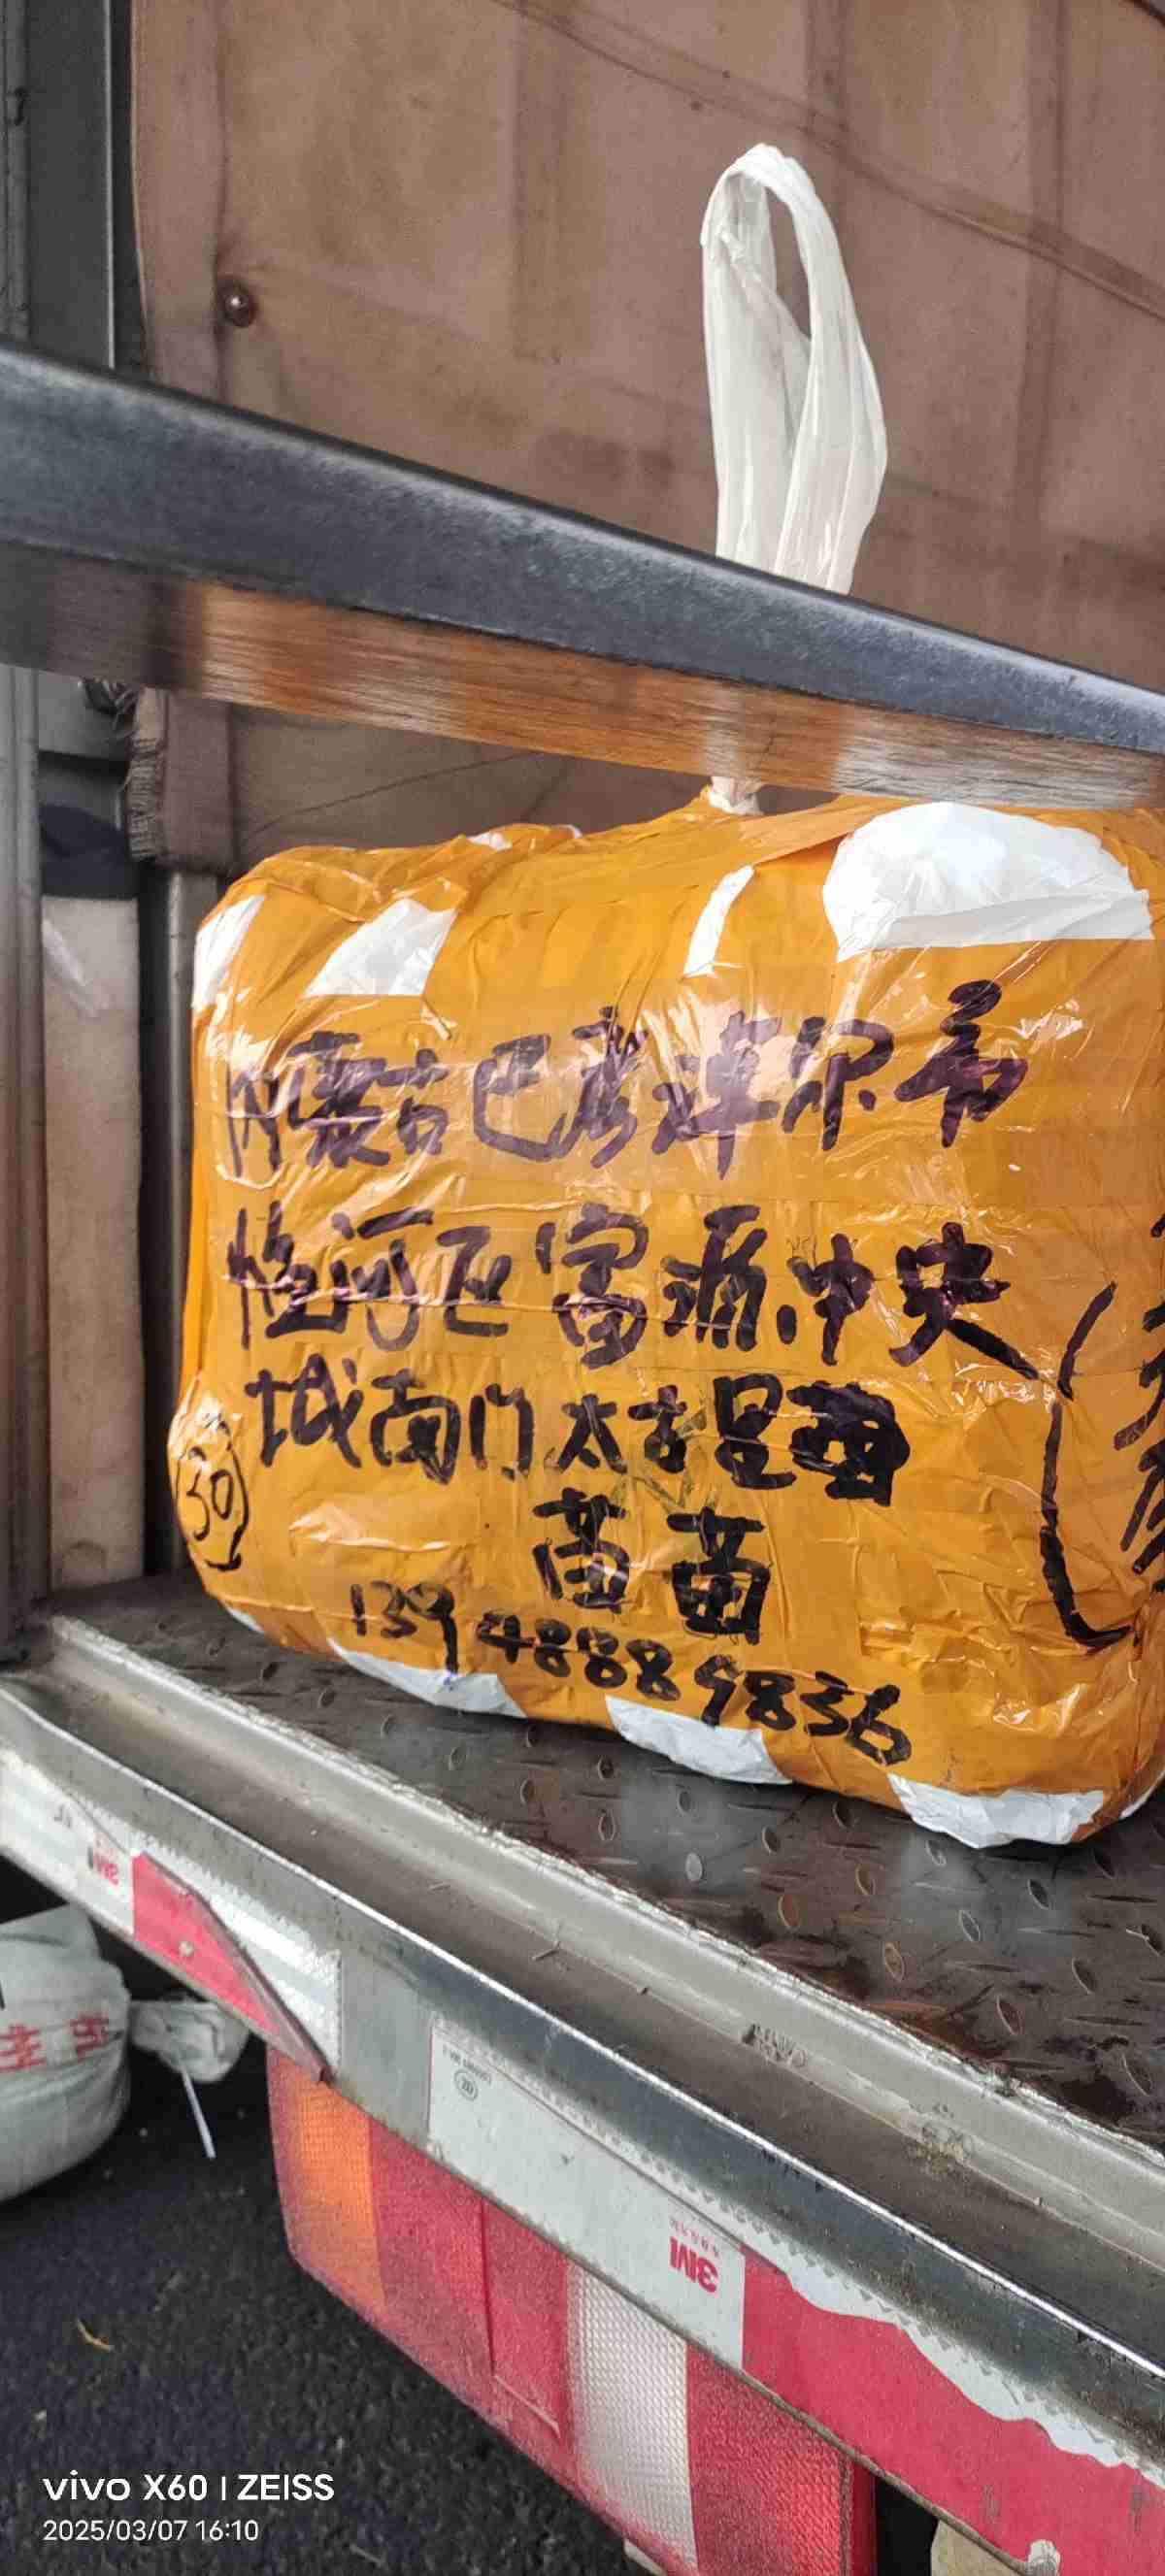 内蒙古巴彦淖尔市
临河区富源中央
城南门太古里西
苗苗
139 4888 9836
30
3M
3M
vivo X60 | ZEISS
2025/03/07 16:10